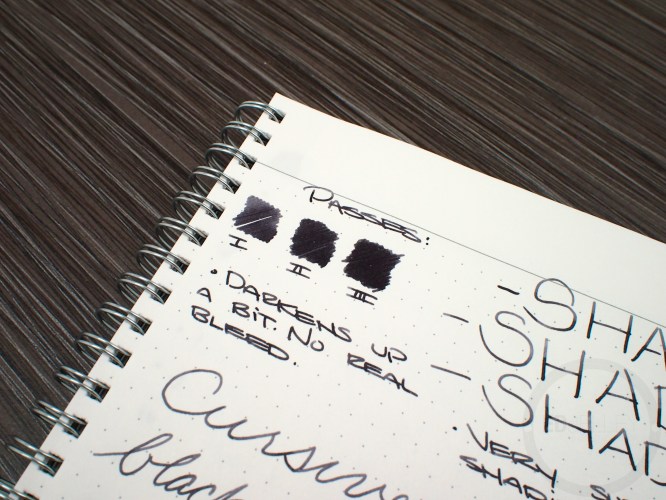 PASSES:
I II III
• DARKENS UP
A BIT. NO REAL
BLEED.
- SHA
- SHAD
- SHAD
• VERY S
SHAD
Cursive
black